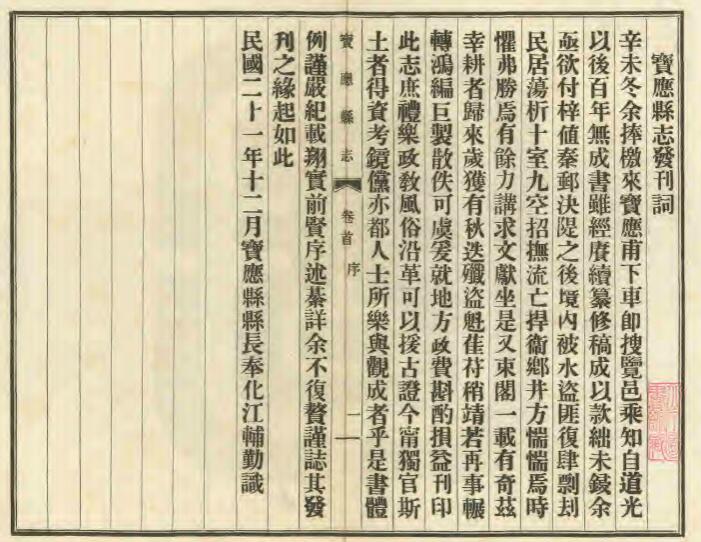 寶應縣志發刊詞
辛未冬余捧檄來寶應甫下車卽搜覽邑乘知自道光
以後百年無成書雖經賡續纂修稿成以款絀未鋟余
亟欲付梓値秦郵決隄之後境內被水盜匪復肆剽刦
民居蕩析十室九空招撫流亡捍衞鄕井方惴惴焉時
懼弗勝焉有餘力講求文獻坐是又束閣一載有奇茲
幸耕者歸來歲獲有秋迭殲盜魁萑苻稍靖若再事輾
轉鴻編巨製散佚可虞爰就地方政費斟酌損益刊印
此志庶禮樂政敎風俗沿革可以援古證今甯獨官斯
寶應縣志 卷首 序 一
土者得資考鏡儻亦都人士所樂與觀成者乎是書體
例謹嚴紀載翔實前賢序述綦詳余不復贅謹誌其發
刊之緣起如此
民國二十一年十二月寶應縣縣長奉化江輔勤識